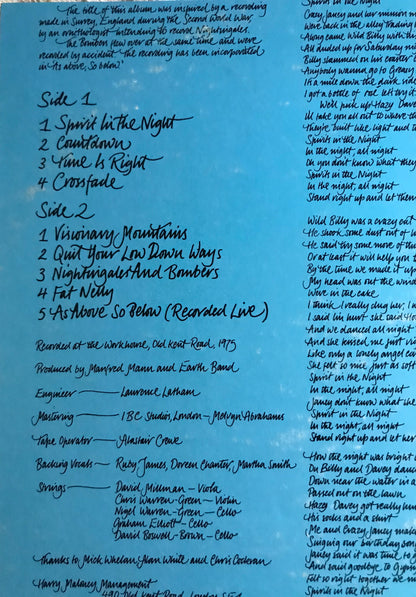 The title of this album was inspired by a recording
made in Surrey, England during the Second World War,
by an ornithologist intending to record Nightingales.
The Bombers flew over at the same time and were
recorded by accident. The recording has been incorporated
in 'As above, So below.'
Side 1
1 Spirit In the Night
2 Countdown
3 Time Is Right
4 Crossfade
Side 2
1 Visionary Mountains
2 Quit Your Low Down Ways
3 Nightingales And Bombers
4 Fat Nelly
5 As Above So Below (Recorded Live)
Recorded at the Workhouse, Old Kent Road, 1975
Produced by Manfred Mann and Earth Band
Engineer — Laurence Latham
Mastering — I B C Studios, London — Melvyn Abrahams
Tape Operator — Alastair Crowe
Backing Vocals — Ruby James, Doreen Chanter, Martha Smith
Strings — David Millman – Viola
Chris Warren-Green – Violin
Nigel Warren-Green – Cello
Graham Elliott – Cello
David Boswell-Brown – Cello
Thanks to Mick Whelan, Alan White and Chris Cockran
Harry Maloney Management
490 Old Kent Road, London SE1
Spirit in the Night
Crazy Janey and her mission m
were back in the alley trading h
Along came Wild Billy with his
All duded up for Saturday nig
Billy slammed on his coaster b
Anybody wanna go to Greasy
It's a mile down the dark side
I got a bottle of rosé let's try it
We'll pick up Hazy Dave
I'll take you all out to where th
They're built like light and th
Spirits in the Night
In the night, all night
Oh you don't know what they
Spirits in the Night
In the night, all night
Stand right up and let them
Wild Billy was a crazy cat
He shook some dust out of h
He said try some more of th
Or at least it will help you
By the time we made it up
My head was out the wind
Were in the cake
I think I really dug her, I
I said I'm hurt she said
And we danced all night
And she kissed me just ri
Like only a lonely angel can
She felt so nice just as soft
Spirit in the Night
In the night, all night
Janey don't know what she
Spirit in the Night
In the night, all night
Stand right up and let her
How the night was bright
On Billy and Davey danc
Down near the water in a
Passed out on the lawn
Hazy Davey got really hur
his socks and a shirt
Me and Crazy Janey maki
Singing our birthday song
Janey said it was time to
And said goodbye to Gypsy
Felt so right together we
Spirits in the Night